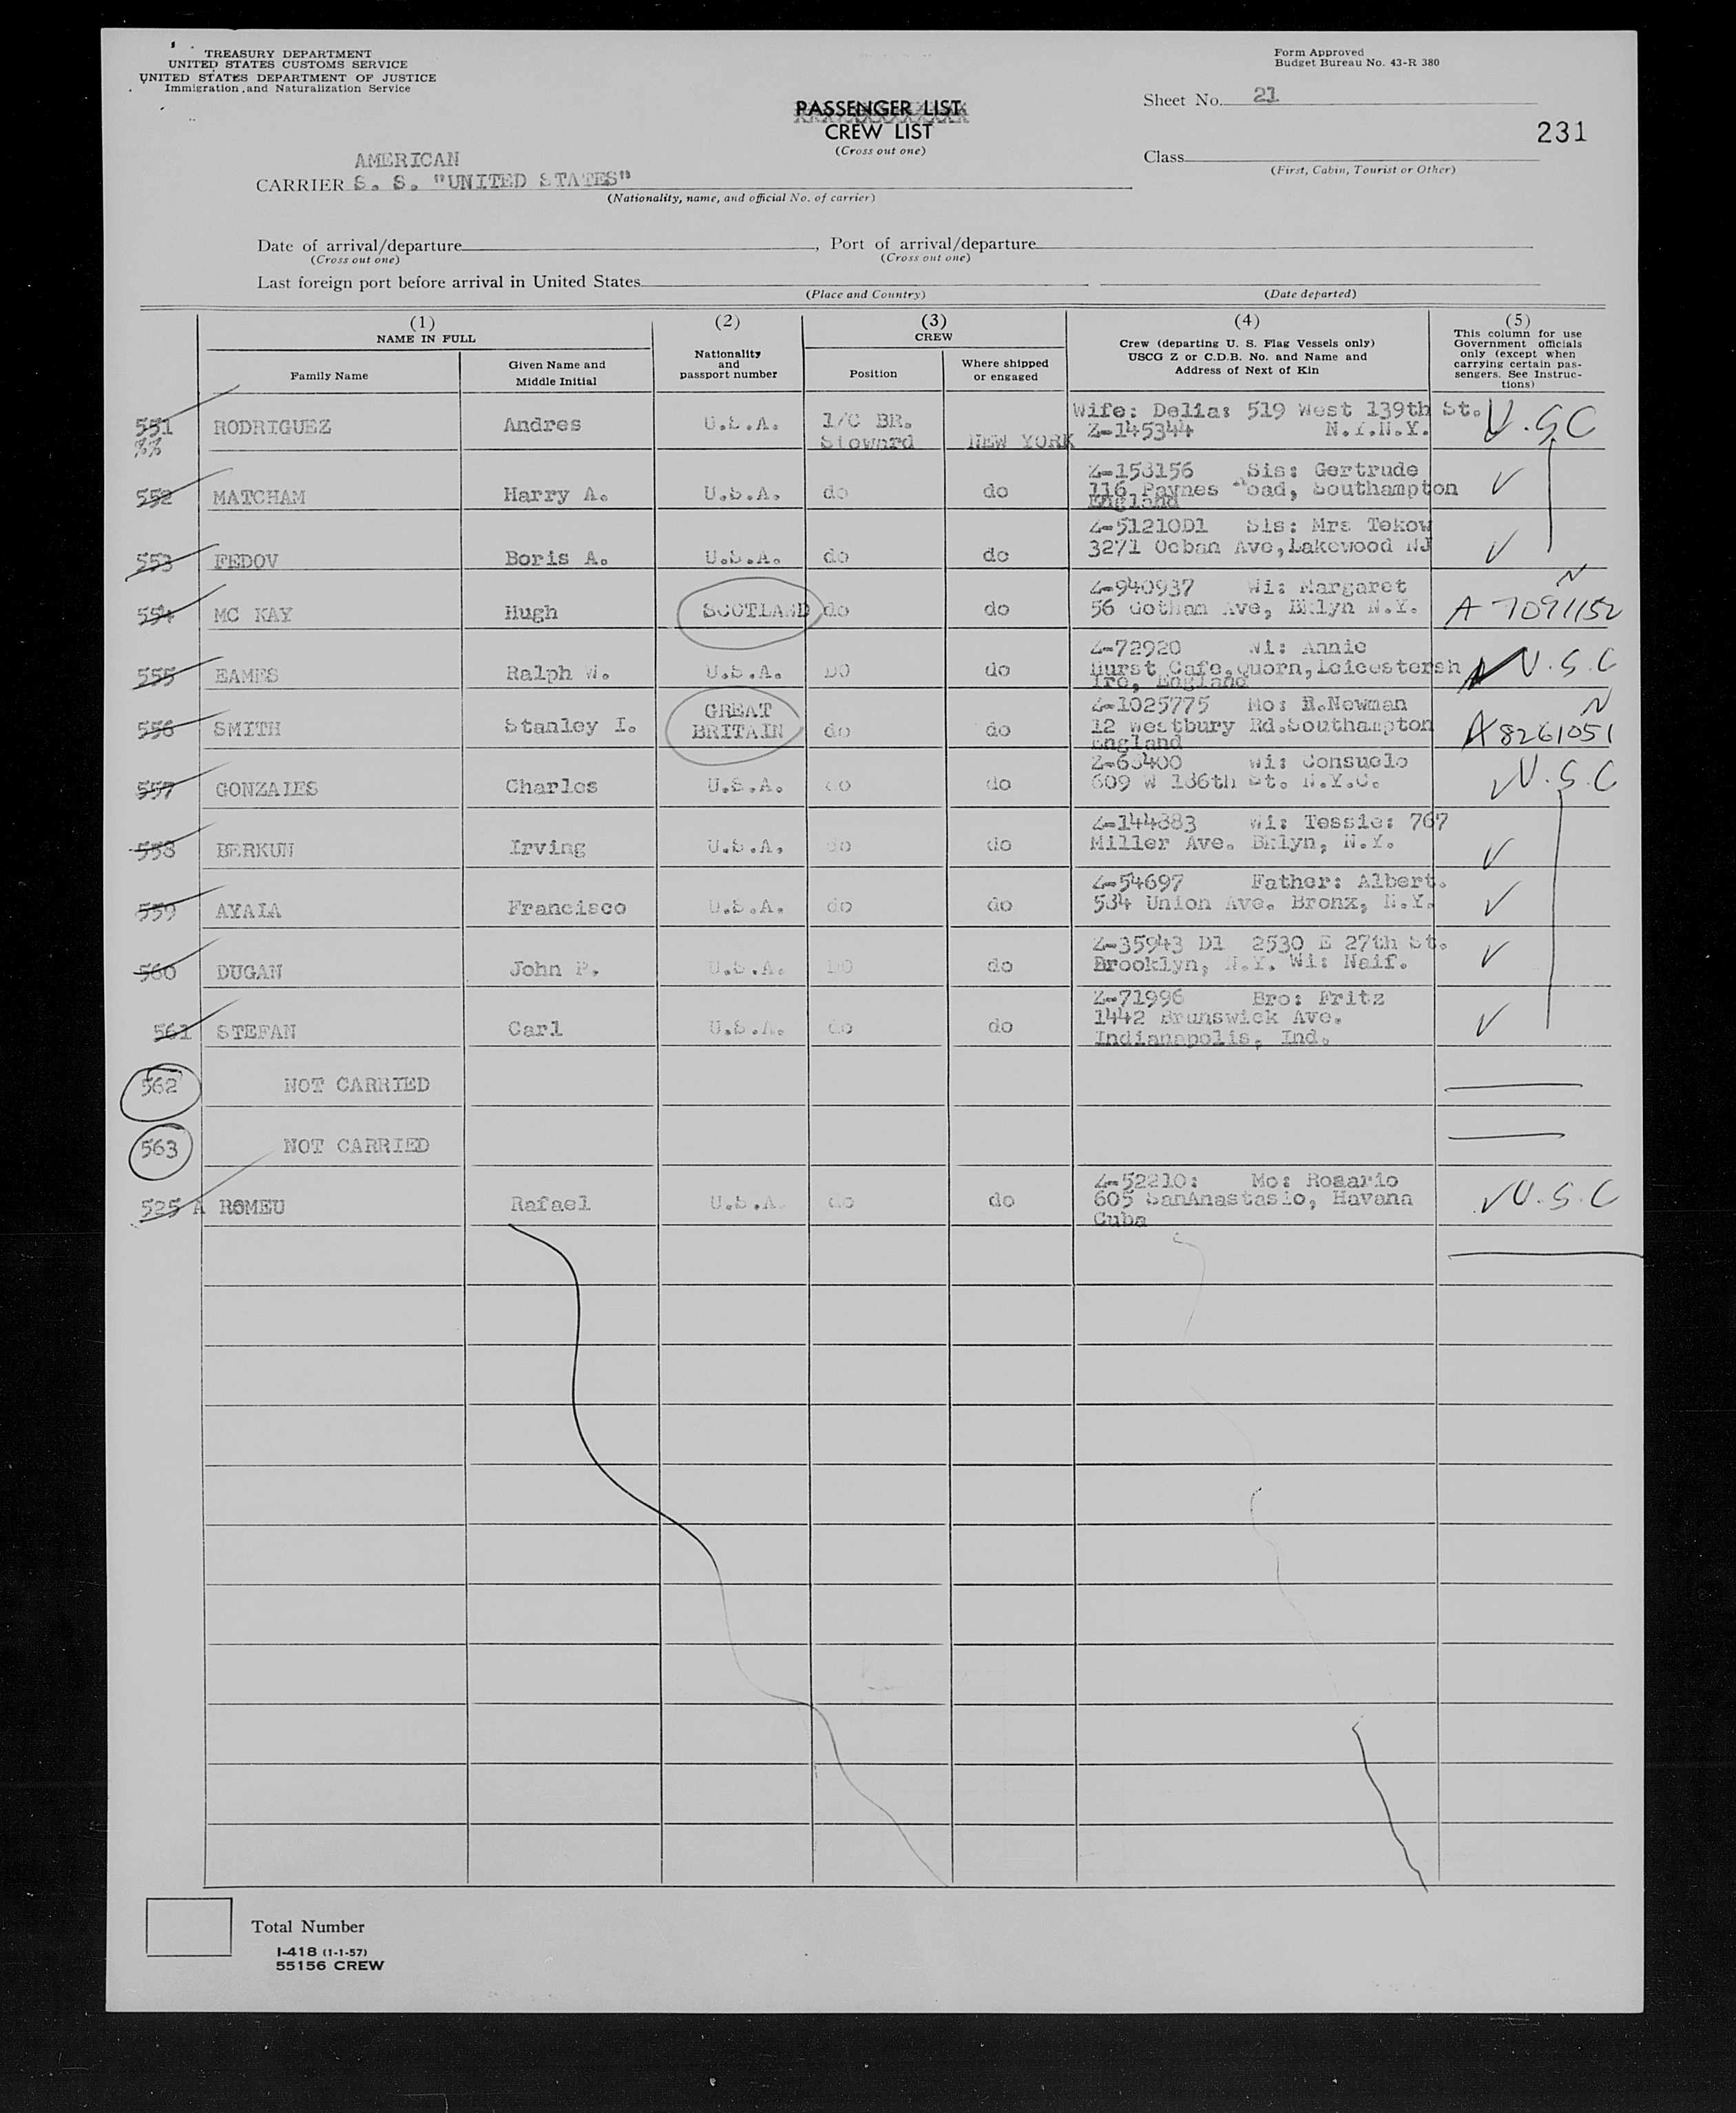 TREASURY DEPARTMENT
UNITED STATES CUSTOMS SERVICE
UNITED STATES DEPARTMENT OF JUSTICE
Immigration and Naturalization Service
Form Approved
Budget Bureau No. 43-R 380
PASSENGER LIST
CREW LIST
(Cross out one)
Sheet No. 21
231
Class
(First, Cabin, Tourist or Other)
AMERICAN
CARRIER S. S. "UNITED STATES"
(Nationality, name, and official No. of carrier)
Date of arrival/departure, Port of arrival/departure
(Cross out one) (Cross out one)
Last foreign port before arrival in United States
(Place and Country) (Date departed)
(1) NAME IN FULL
Family Name
Given Name and Middle Initial
(2) Nationality and passport number
(3) CREW
Position
Where shipped or engaged
(4) Crew (departing U. S. Flag Vessels only) USCG Z or C.D.B. No. and Name and Address of Next of Kin
(5) This column for use Government officials only (except when carrying certain passengers. See Instructions)
551 RODRIGUEZ Andres U.S.A. 1/C BR. Steward NEW YORK Wife: Delia: 519 West 139th St. Z-145344 N.Y.N.Y. U.S.C
552 MATCHAM Harry A. U.S.A. do do Z-153156 Sis: Gertrude 116 Paynes Road, Southampton England ✓
553 FEDOV Boris A. U.S.A. do do Z-51210D1 Sis: Mrs Tekow 3271 Ocean Ave, Lakewood NJ ✓
554 MC KAY Hugh SCOTLAND do do Z-940937 Wi: Margaret 56 Gotham Ave, Bklyn N.Y. N A 7091152
555 EAMES Ralph W. U.S.A. DO do Z-72920 Wi: Annie Hurst Cafe, Quorn, Leicestersh ire, England U.S.C
556 SMITH Stanley I. GREAT BRITAIN do do Z-1025775 Mo: R.Newman 12 Westbury Rd.Southampton England N A8261051
557 GONZALES Charles U.S.A. do do Z-63400 Wi: Consuelo 609 W 136th St. N.Y.C. U.S.C
558 BERKUN Irving U.S.A. do do Z-144883 Wi: Tessie: 767 Miller Ave. Bklyn, N.Y. ✓
559 AYALA Francisco U.S.A. do do Z-54697 Father: Albert. 534 Union Ave. Bronx, N.Y. ✓
560 DUGAN John P. U.S.A. DO do Z-35943 D1 2530 E 27th St. Brooklyn, N.Y. Wi: Naif. ✓
561 STEFAN Carl U.S.A. do do Z-71996 Bro: Fritz 1442 Brunswick Ave. Indianapolis, Ind. ✓
562 NOT CARRIED
563 NOT CARRIED
525 A ROMEU Rafael U.S.A. do do Z-52210: Mo: Rosario 605 SanAnastasio, Havana Cuba ✓U.S.C
Total Number
I-418 (1-1-57)
55156 CREW